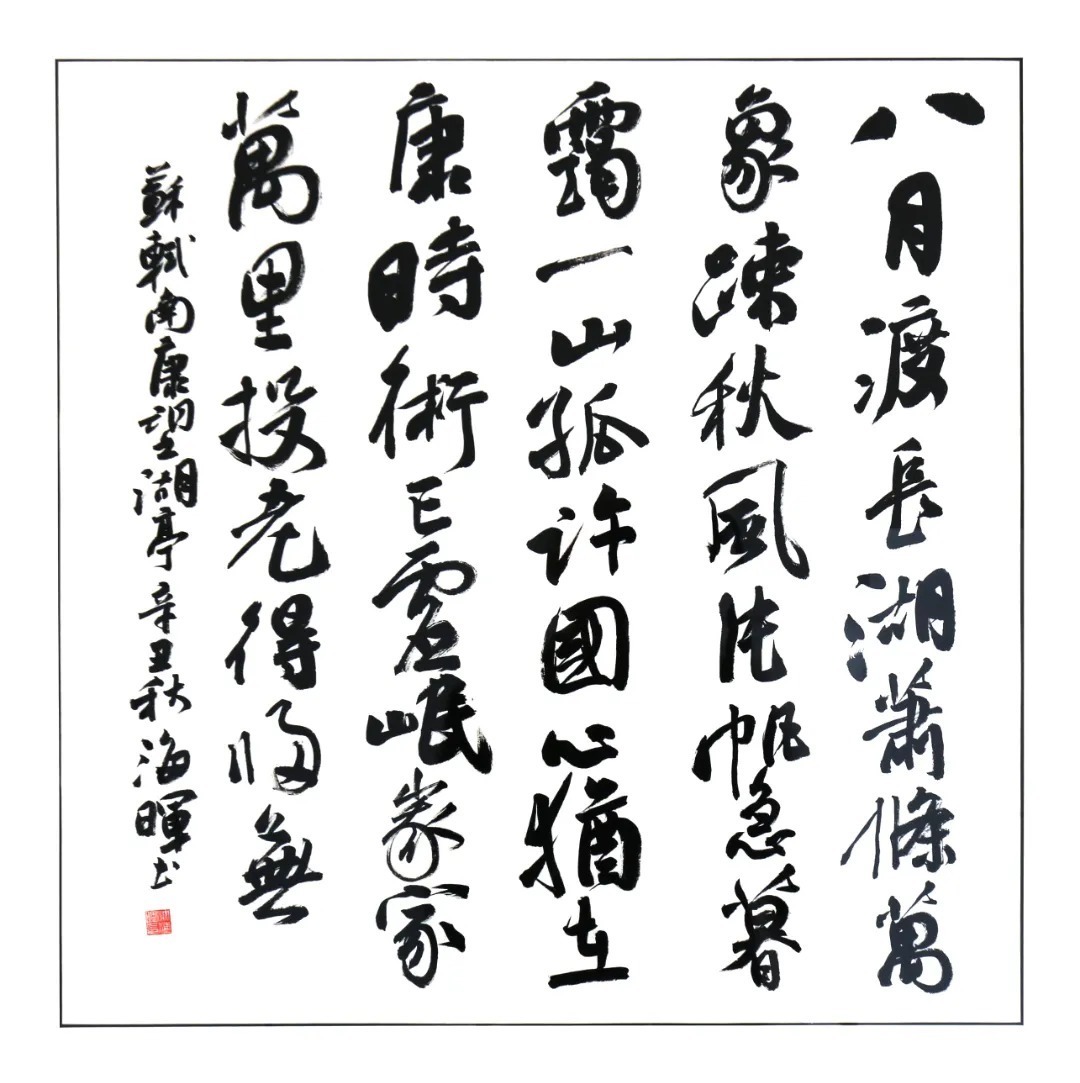 八月渡長湖蕭條萬
象疎秋風片帆急暮
靄一山孤許國心猶在
康時術已虛岷峩家
萬里投老得歸無
蘇軾南康望湖亭辛丑秋海暉书